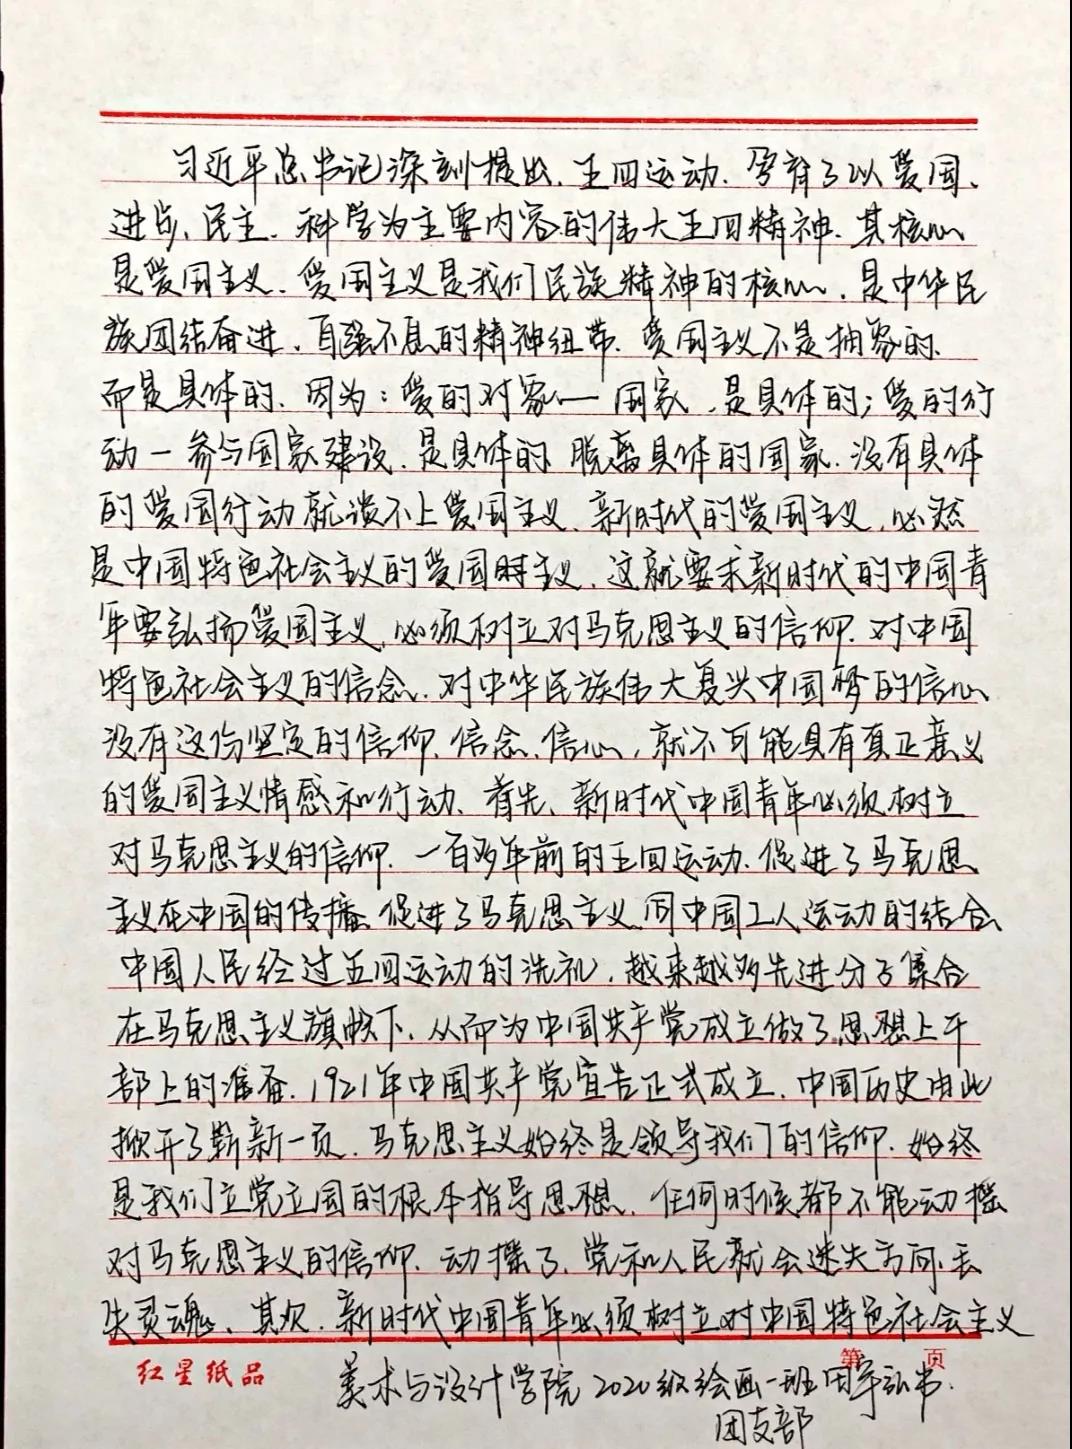 习近平总书记深刻提出、五四运动、孕育了以爱国、
进步、民主、科学为主要内容的伟大五四精神、其核心
是爱国主义、爱国主义是我们民族精神的核心、是中华民
族团结奋进、自强不息的精神纽带、爱国主义不是抽象的、
而是具体的、因为：爱的对象—国家、是具体的；爱的行
动—参与国家建设、是具体的、脱离具体的国家、没有具体
的爱国行动就谈不上爱国主义、新时代的爱国主义、必然
是中国特色社会主义的爱国主义、这就要求新时代的中国青
年要弘扬爱国主义、必须树立对马克思主义的信仰、对中国
特色社会主义的信念、对中华民族伟大复兴中国梦的信心
没有这份坚定的信仰、信念、信心、就不可能具有真正意义
的爱国主义情感和行动、首先、新时代中国青年必须树立
对马克思主义的信仰、一百多年前的五四运动、促进了马克思
主义在中国的传播、促进了马克思主义同中国工人运动的结合
中国人民经过五四运动的洗礼、越来越多先进分子集合
在马克思主义旗帜下、从而为中国共产党成立做了思想上干
部上的准备、1921年中国共产党宣告正式成立、中国历史由此
掀开了崭新一页、马克思主义始终是领导我们的信仰、始终
是我们立党立国的根本指导思想、任何时候都不能动摇
对马克思主义的信仰、动摇了、党和人民就会迷失方向、丢
失灵魂、其次、新时代中国青年必须树立对中国特色社会主义
红星纸品 第 页
美术与设计学院2020级绘画一班田宇弘书、
团支部